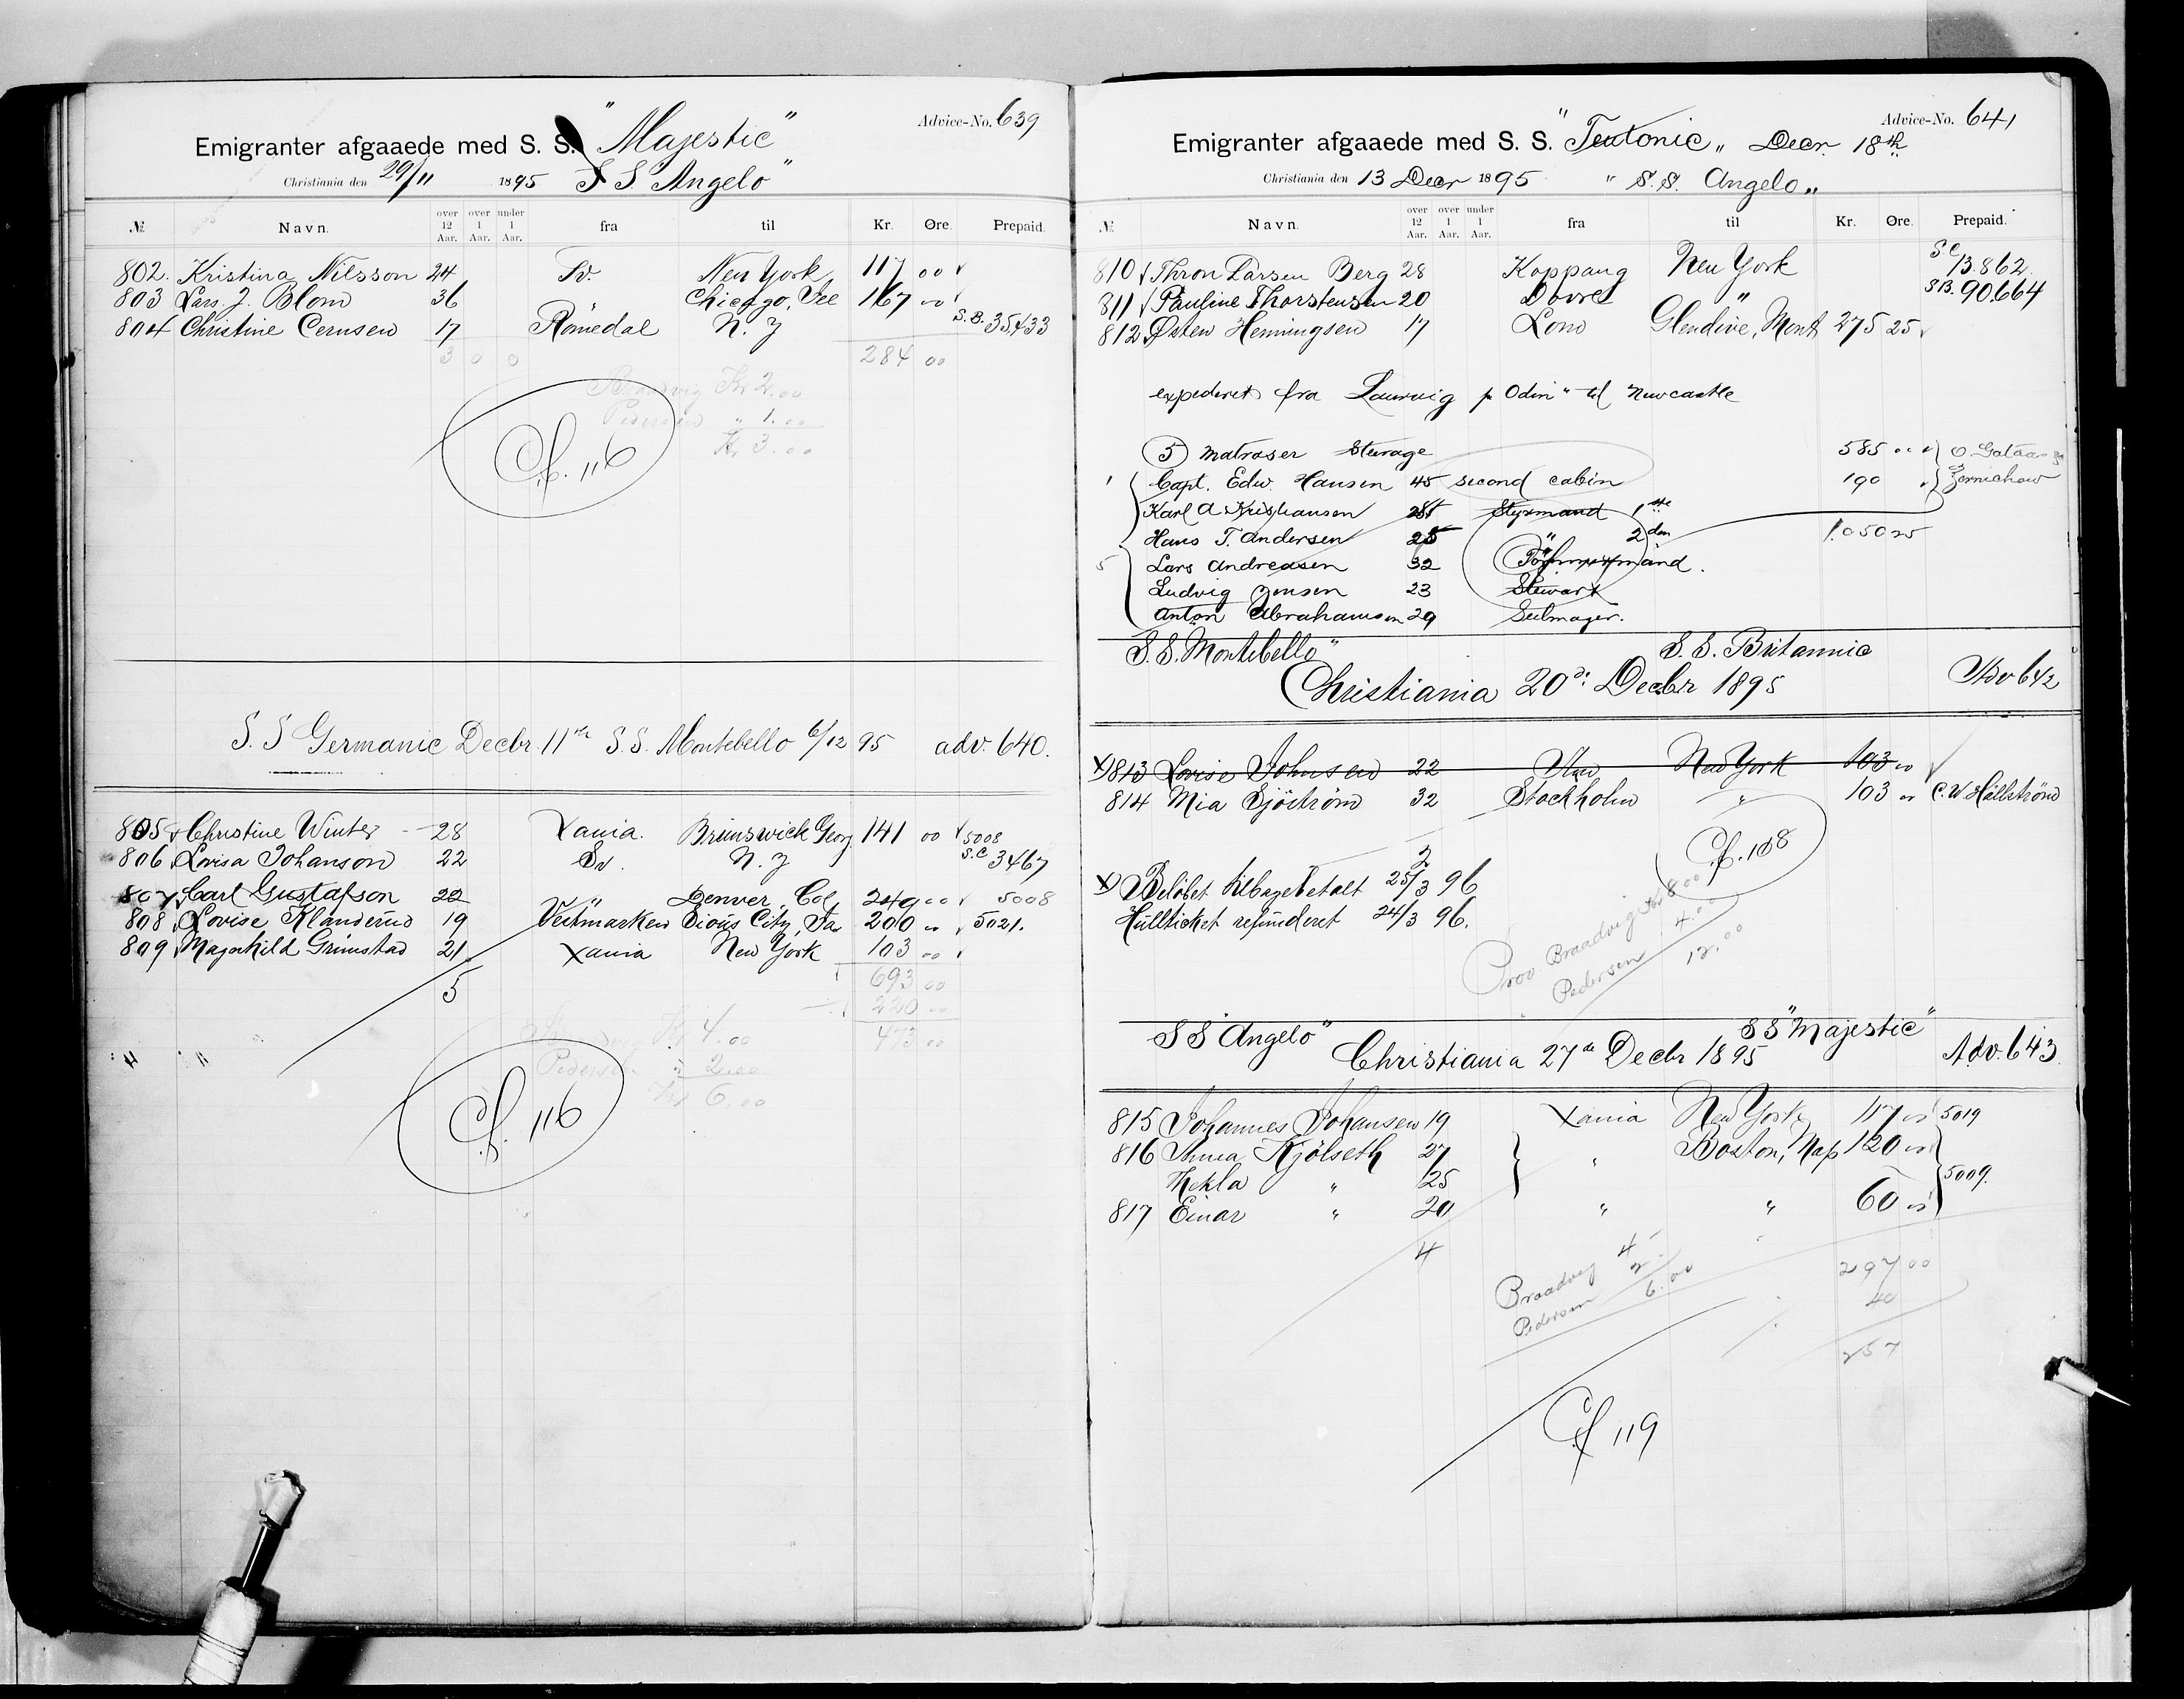 Advice-No. 639
Emigranter afgaaede med S. S. "Majestic"
Christiania den 29/11 1895 S S Angelo"
№ Navn. over 12 Aar. over 1 Aar. under 1 Aar. fra til Kr. Øre. Prepaid.
802. Kristina Nilsson 24 Sv. New York 117 00
803 Lars J. Blom 36 Chicago, Ill 167 00
804 Christine Cernsen 17 Romedal N. Y S.B. 35433
3 0 0 284 00
Braadvig Kr 2.00
Pedersen " 1.00
Kr 3.00
Cf. 116
S. S Germanic Decbr. 11th S.S. Montebello 6/12 95 adv. 640.
805 Christine Winter 28 Xania. Brunswick Georg 141 00 5008
806 Lovisa Johanson 22 Sv. N. Y S.C 3467
807 Carl Gustafson 22 " Denver, Col. 249 00 5008
808 Lovise Klanderud 19 Veitmarken Sioux City, Ia 200 00 5021.
809 Magnhild Grimstad 21 Xania New York 103 00
5 693 00
220 00
473 00
Braadvig Kr 4.00
Pedersen " 2.00
Kr 6.00
Cf. 116
Advice-No. 641
Emigranter afgaaede med S. S. "Teutonic" Decr. 18th
Christiania den 13 Decr 1895 "S.S. Angelo"
№ Navn. over 12 Aar. over 1 Aar. under 1 Aar. fra til Kr. Øre. Prepaid.
810 Thron Larsen Berg 28 Koppang New York SC 13.862
811 Pauline Thorstensen 20 Dovre " SB. 90664
812 Østen Hemmingsen 17 Lom Glendive, Mont 275 25
expederet fra Laurvig p Odin" til Newcastle
5 matroser Steerage 585 00
1 Capt. Edw. Hansen 45 second cabin 190
Karl A Kristiansen Styrmand 1ste
Hans T. Andersen 25 " 2den 1050 25
5 Lars Andreasen 32 Tømmermand.
Ludvig Jensen 23 Stewart
Anton Abrahamsen 29 Seilmager.
S.S. Montebello" S.S. Britannic
Christiania 20de Decbr 1895 Adv 642
X) 813 Lovise Johnsen 22 New York 103 00
814 Mia Sjöström 32 Stockholm " 103 00 C.W. Hällström
2
Cf. 108
X) Beløbet tilbagebetalt 25/3 96
Hullticket refunderet 24/3 96.
Prov. Braadvig Kr 8.00
Pedersen 4.00
12.00
S S "Angelo" S S "Majestic"
Christiania 27de Decbr 1895 Adv. 643.
815 Johannes Johansen 19 Xania New York 117 00 5019
816 Anna Kjölseth 27 " Boston, Mass 120 00
Thekla " 25 5009.
817 Einar " 20 " " 60 00
4
Braadvig 4
Pedersen 2
6.00
297 00
40
257
Cf 119